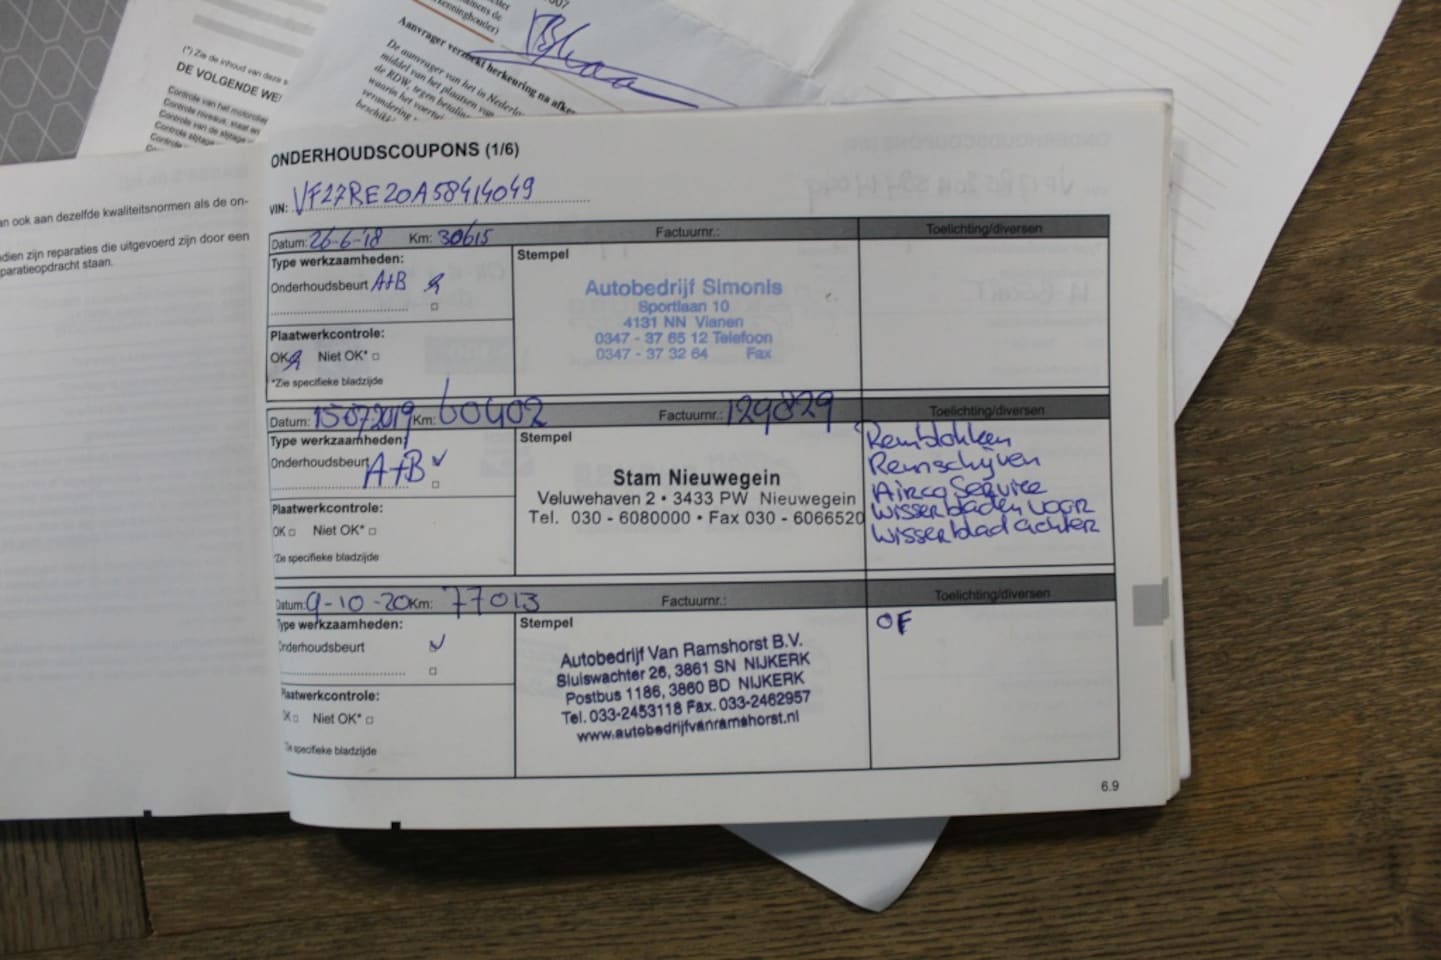 (*) Zie de inhoud van deze
DE VOLGENDE
Controle van het
Controle niveaus, staat en
Controle van de slijtage
Controle
Aanvrager verzoekt herkeuring na
De aanvrager van het in
middel van het plaatsen van
de RDW, tegen
waarin het
verandering
an ook aan dezelfde kwaliteitsnormen als de on-
dien zijn reparaties die uitgevoerd zijn door een
paratieopdracht staan.
ONDERHOUDSCOUPONS (1/6)
VIN: VF27RE20A58414049
Datum: 26-6-18 Km: 30615 Factuurnr.: Toelichting/diversen
Type werkzaamheden:
Onderhoudsbeurt A+B
Plaatwerkcontrole:
OK Niet OK*
*Zie specifieke bladzijde
Stempel
Autobedrijf Simonis
Sportlaan 10
4131 NN Vianen
0347 - 37 65 12 Telefoon
0347 - 37 32 64 Fax
Datum: 15072019 Km: 60402 Factuurnr.: 129829 Toelichting/diversen
Type werkzaamheden:
Onderhoudsbeurt A+B ✓
Plaatwerkcontrole:
OK Niet OK*
*Zie specifieke bladzijde
Stempel
Stam Nieuwegein
Veluwehaven 2 • 3433 PW Nieuwegein
Tel. 030 - 6080000 • Fax 030 - 6066520
Remblokken
Remschijven
Airco Service
Wisserbladen voor
Wisserblad achter
Datum: 9-10-20 Km: 77013 Factuurnr.: Toelichting/diversen
Type werkzaamheden:
Onderhoudsbeurt ✓
Plaatwerkcontrole:
OK Niet OK*
Zie specifieke bladzijde
Stempel
Autobedrijf Van Ramshorst B.V.
Sluiswachter 26, 3861 SN NIJKERK
Postbus 1186, 3860 BD NIJKERK
Tel. 033-2453118 Fax. 033-2462957
www.autobedrijfvanramshorst.nl
OF
6.9